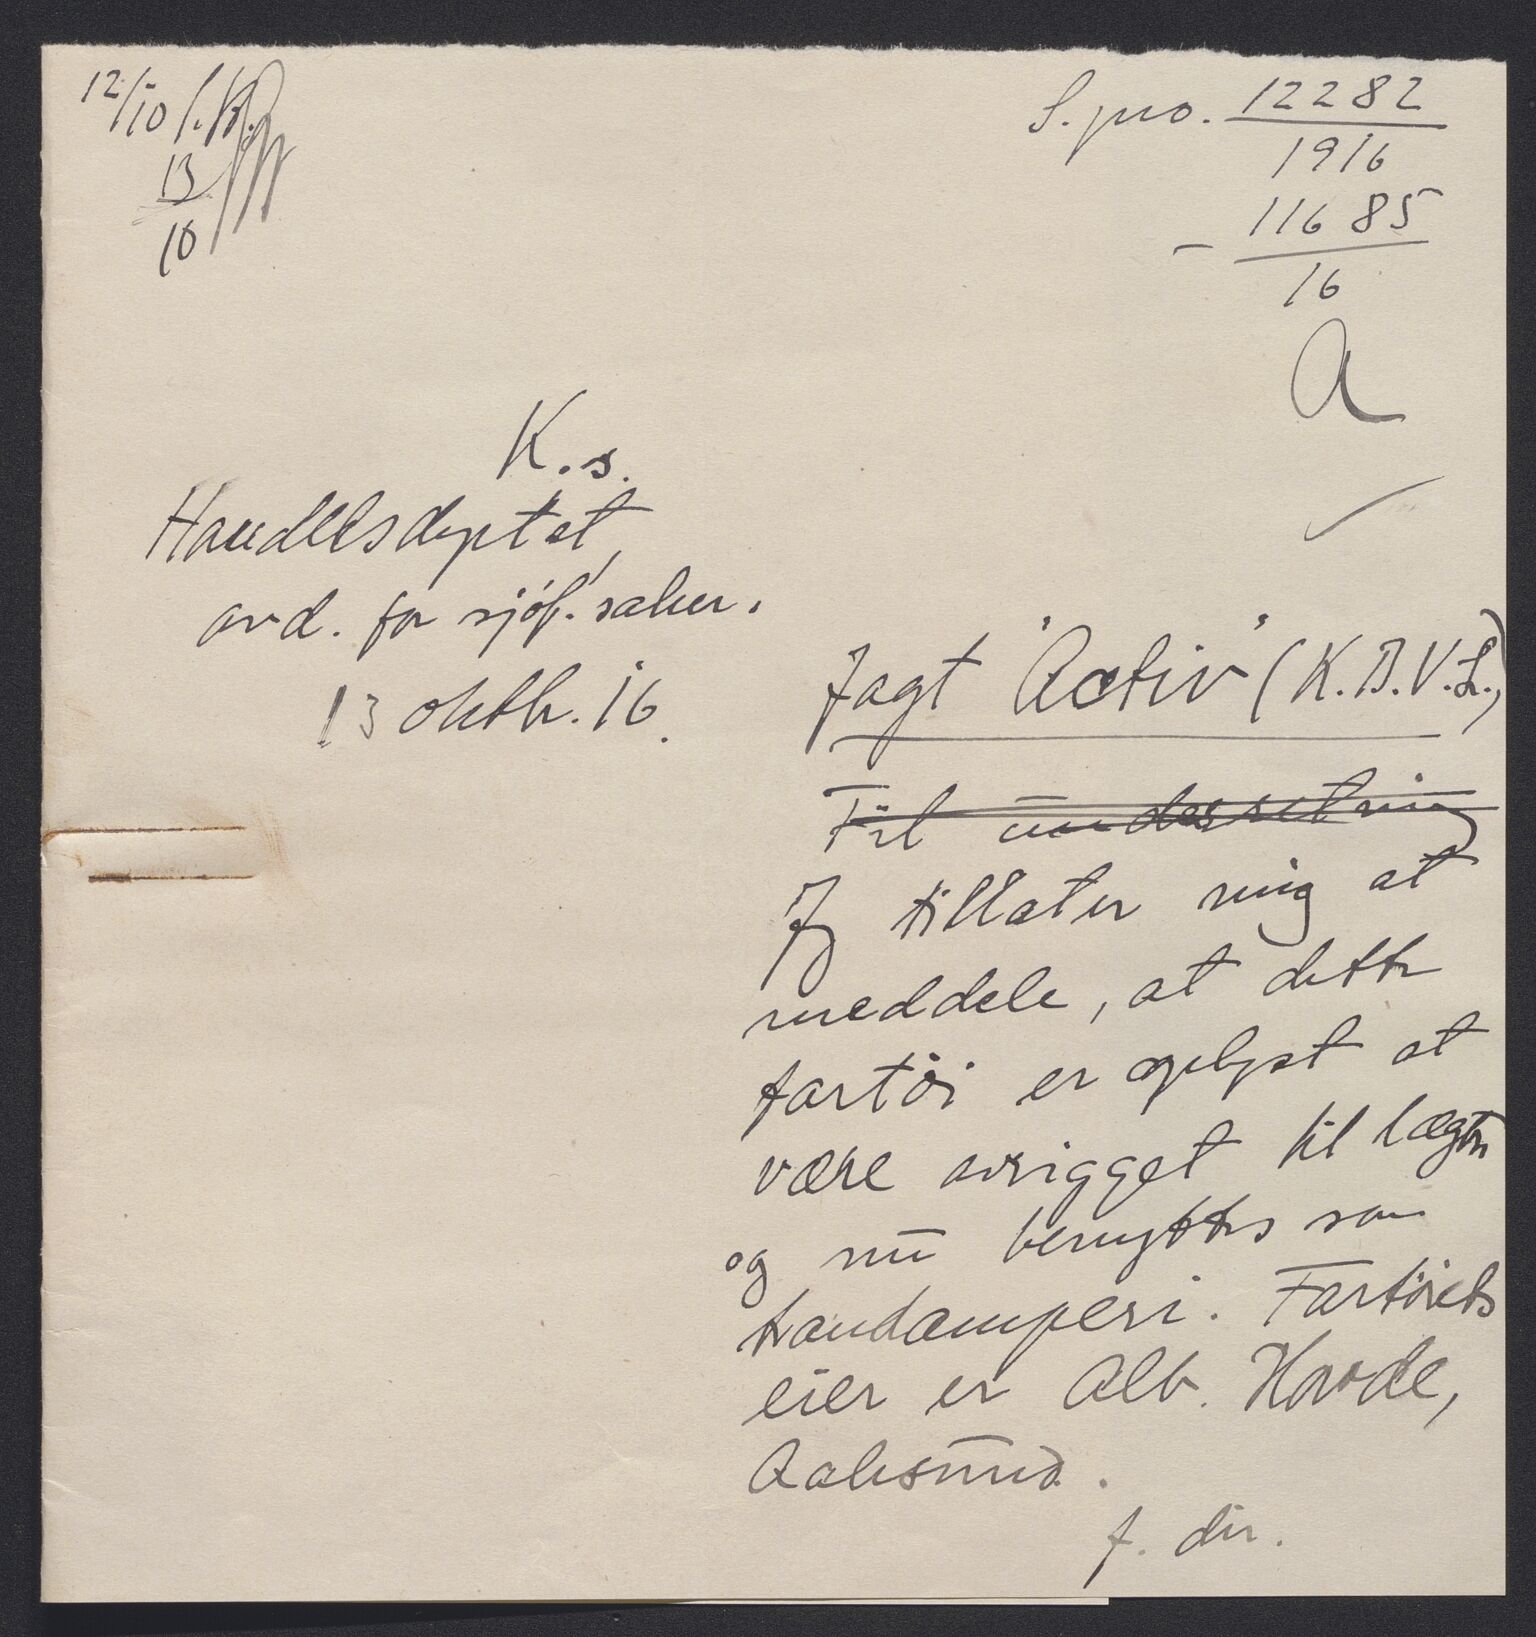 12/10
13
10
S. jno. 12282
1916
— 11685
16
A
K. s.
Handelsdeptet,
avd. for sjöf. saker.
13 oktbr. 16.
Jagt "Activ" (K.B.V.L.)
Til underretning
Jeg tillater mig at
meddele, at dette
fartöi er oplyst at
være avrigget til lægter
og nu benyttes som
trandamperi. Fartöiets
eier er Alb. Havde,
Aalesund.
f. dir.